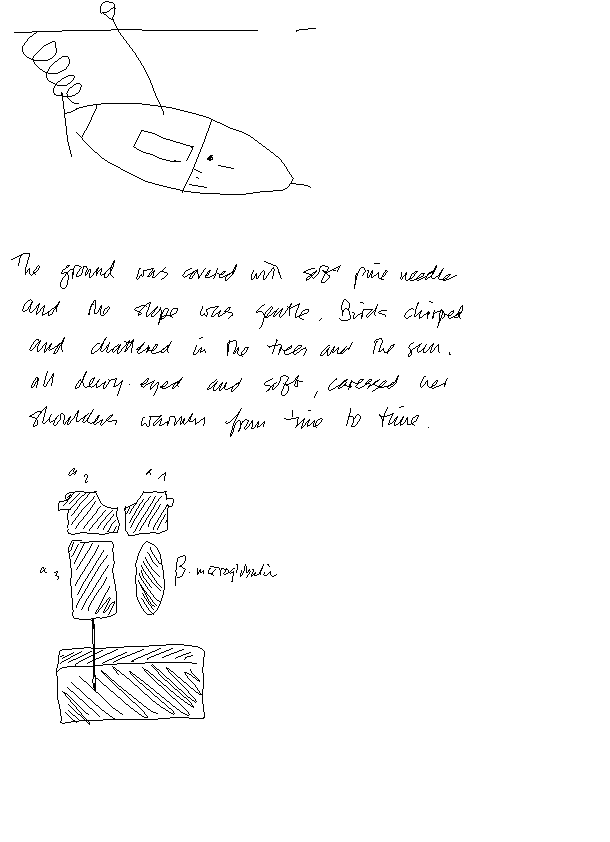 The ground was covered with soft pine needle
and the slope was gentle. Birds chirped
and chattered in the trees and the sun.
all dewy-eyed and soft, caressed her
shoulders warmly from time to time.
α2 α1
α3 β-microglobulin